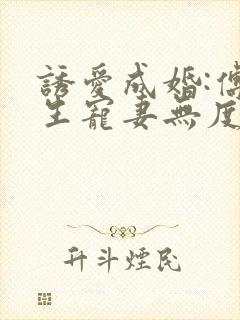 誘愛成婚:
生寵妻無度
升斗煙民